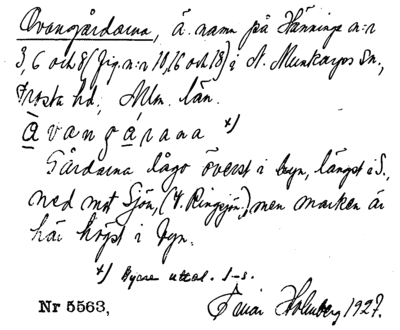 Ovangårdarna, ä. namn på Hänninge n:r
3, 6 och 8 (jrg. n:r 10, 16 och 18) i N. Munkarps sn.,
Frosta hd, Mlm. län.
åvangårana x)
Gårdarna lågo överst i byn, längst i S.,
ned mot Sjön, (V. Ringsjön), men marken är
här högst i byn.
x) Nyare uttal. 1-s.
Nr 5563, Einar Holmberg 1927.